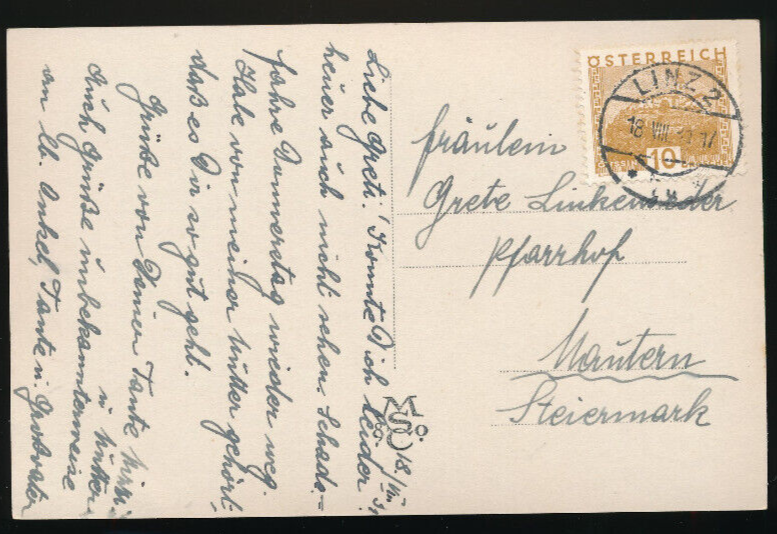 ÖSTERREICH
LINZ 2
18 VIII 17
10
Fräulein
Grete Linkeneder
Pfarrhof
Mautern
Steiermark
18./VIII.
Liebe Greti! Konnte Dich leider
heuer auch nicht sehen. Schade.–
Fahre Donnerstag wieder weg.
Habe von meiner Mutter gehört,
daß es Dir so gut geht.
Grüße von Deiner Tante
u. Mutter
Auch Grüße unbekannterweise
an lb. Onkel, Tante u. Großvater